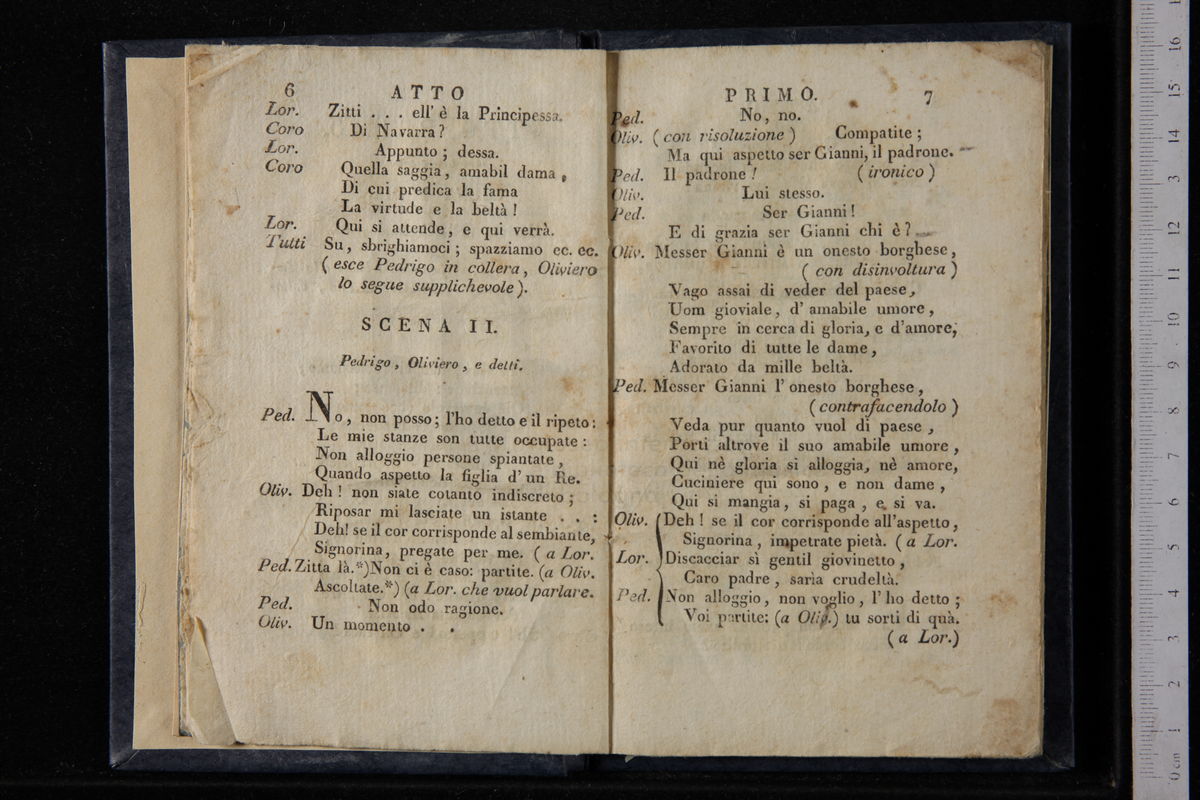 6 ATTO
Lor. Zitti . . . ell' è la Principessa.
Coro Di Navarra?
Lor. Appunto; dessa.
Coro Quella saggia, amabil dama,
Di cui predica la fama
La virtude e la beltà!
Lor. Qui si attende, e qui verrà.
Tutti Su, sbrighiamoci; spazziamo ec. ec.
(esce Pedrigo in collera, Oliviero
lo segue supplichevole).
SCENA II.
Pedrigo, Oliviero, e detti.
Ped. No, non posso; l'ho detto e il ripeto:
Le mie stanze son tutte occupate:
Non alloggio persone spiantate,
Quando aspetto la figlia d'un Re.
Oliv. Deh! non siate cotanto indiscreto;
Riposar mi lasciate un istante . . :
Deh! se il cor corrisponde al sembiante,
Signorina, pregate per me. (a Lor.
Ped. Zitta là.*)Non ci è caso: partite. (a Oliv.
Ascoltate.*) (a Lor. che vuol parlare.
Ped. Non odo ragione.
Oliv. Un momento . .
PRIMO. 7
Ped. No, no.
Oliv. (con risoluzione) Compatite;
Ma qui aspetto ser Gianni, il padrone.
Ped. Il padrone! (ironico)
Oliv. Lui stesso.
Ped. Ser Gianni!
E di grazia ser Gianni chi è?
Oliv. Messer Gianni è un onesto borghese,
(con disinvoltura)
Vago assai di veder del paese,
Uom gioviale, d'amabile umore,
Sempre in cerca di gloria, e d'amore;
Favorito di tutte le dame,
Adorato da mille beltà.
Ped. Messer Gianni l'onesto borghese,
(contrafacendolo)
Veda pur quanto vuol di paese,
Porti altrove il suo amabile umore,
Qui nè gloria si alloggia, nè amore,
Cuciniere qui sono, e non dame,
Qui si mangia, si paga, e si va.
Oliv. Deh! se il cor corrisponde all'aspetto,
Signorina, impetrate pietà. (a Lor.
Lor. Discacciar sì gentil giovinetto,
Caro padre, saria crudeltà.
Ped. Non alloggio, non voglio, l'ho detto;
Voi partite: (a Oliv.) tu sorti di quà.
(a Lor.)
0 cm 1 2 3 4 5 6 7 8 9 10 11 12 13 14 15 16